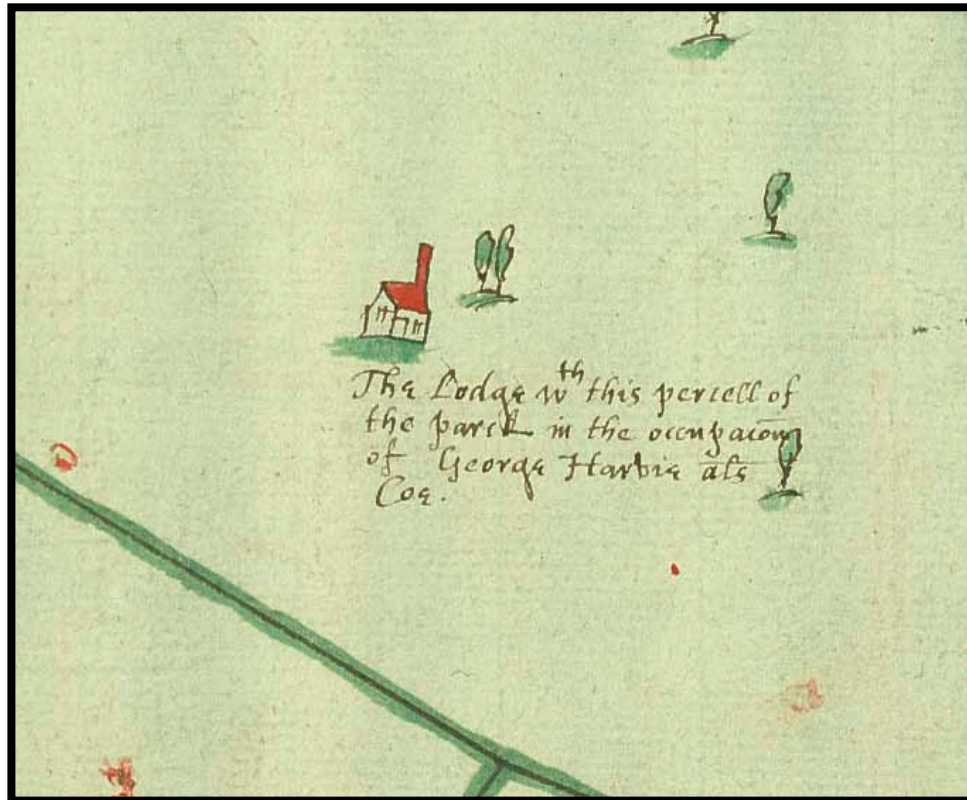 The Lodge wth this percell of
the parck in the occupacōn
of George Harvie als
Coe.